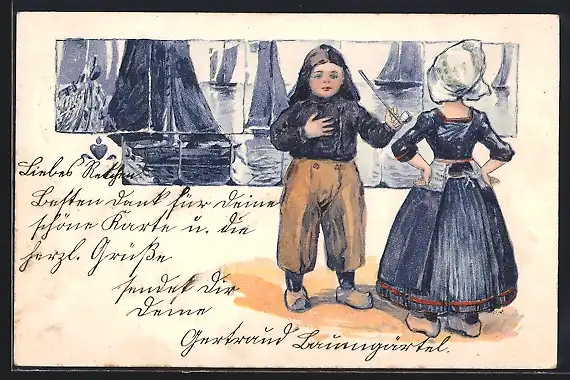 Liebes Retchen!
Besten Dank für Deine
schöne Karte u. die
herzl. Grüße
sendet Dir
Deine
Gertraud Baumgärtel.